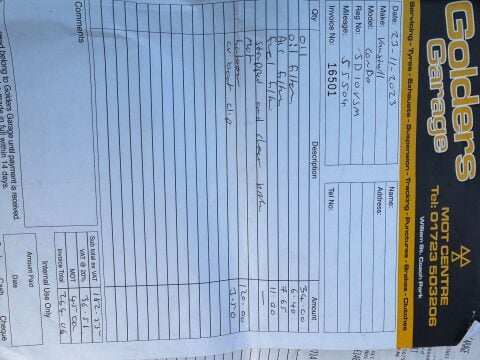 Golders
Garage
MOT CENTRE
Tel: 01723 503206
William St. Coach Park
Servicing - Tyres - Exhausts - Suspension - Tracking - Punctures - Brakes - Clutches
Date: 23.11.2023
Make: Vauxhall
Model: Combo
Reg No:
Mileage: 55504
Invoice No: 16501
Name:
Address:
Tel No:
Qty Description Amount
oil 34.00
oil filter 6.40
Air filter 7.65
fuel filter 11.00
stripped and clean —
MOT
Labour 120.00
cv boot clip 3.50
Comments
Sub total ex VAT 182.55
VAT @ 20% 36.51
MOT 45.00
Invoice Total 264.06
Internal Use Only
Amount Paid
Date
Cash Cheque
belong to Golders Garage until payment is received.
made in full within 14 days.